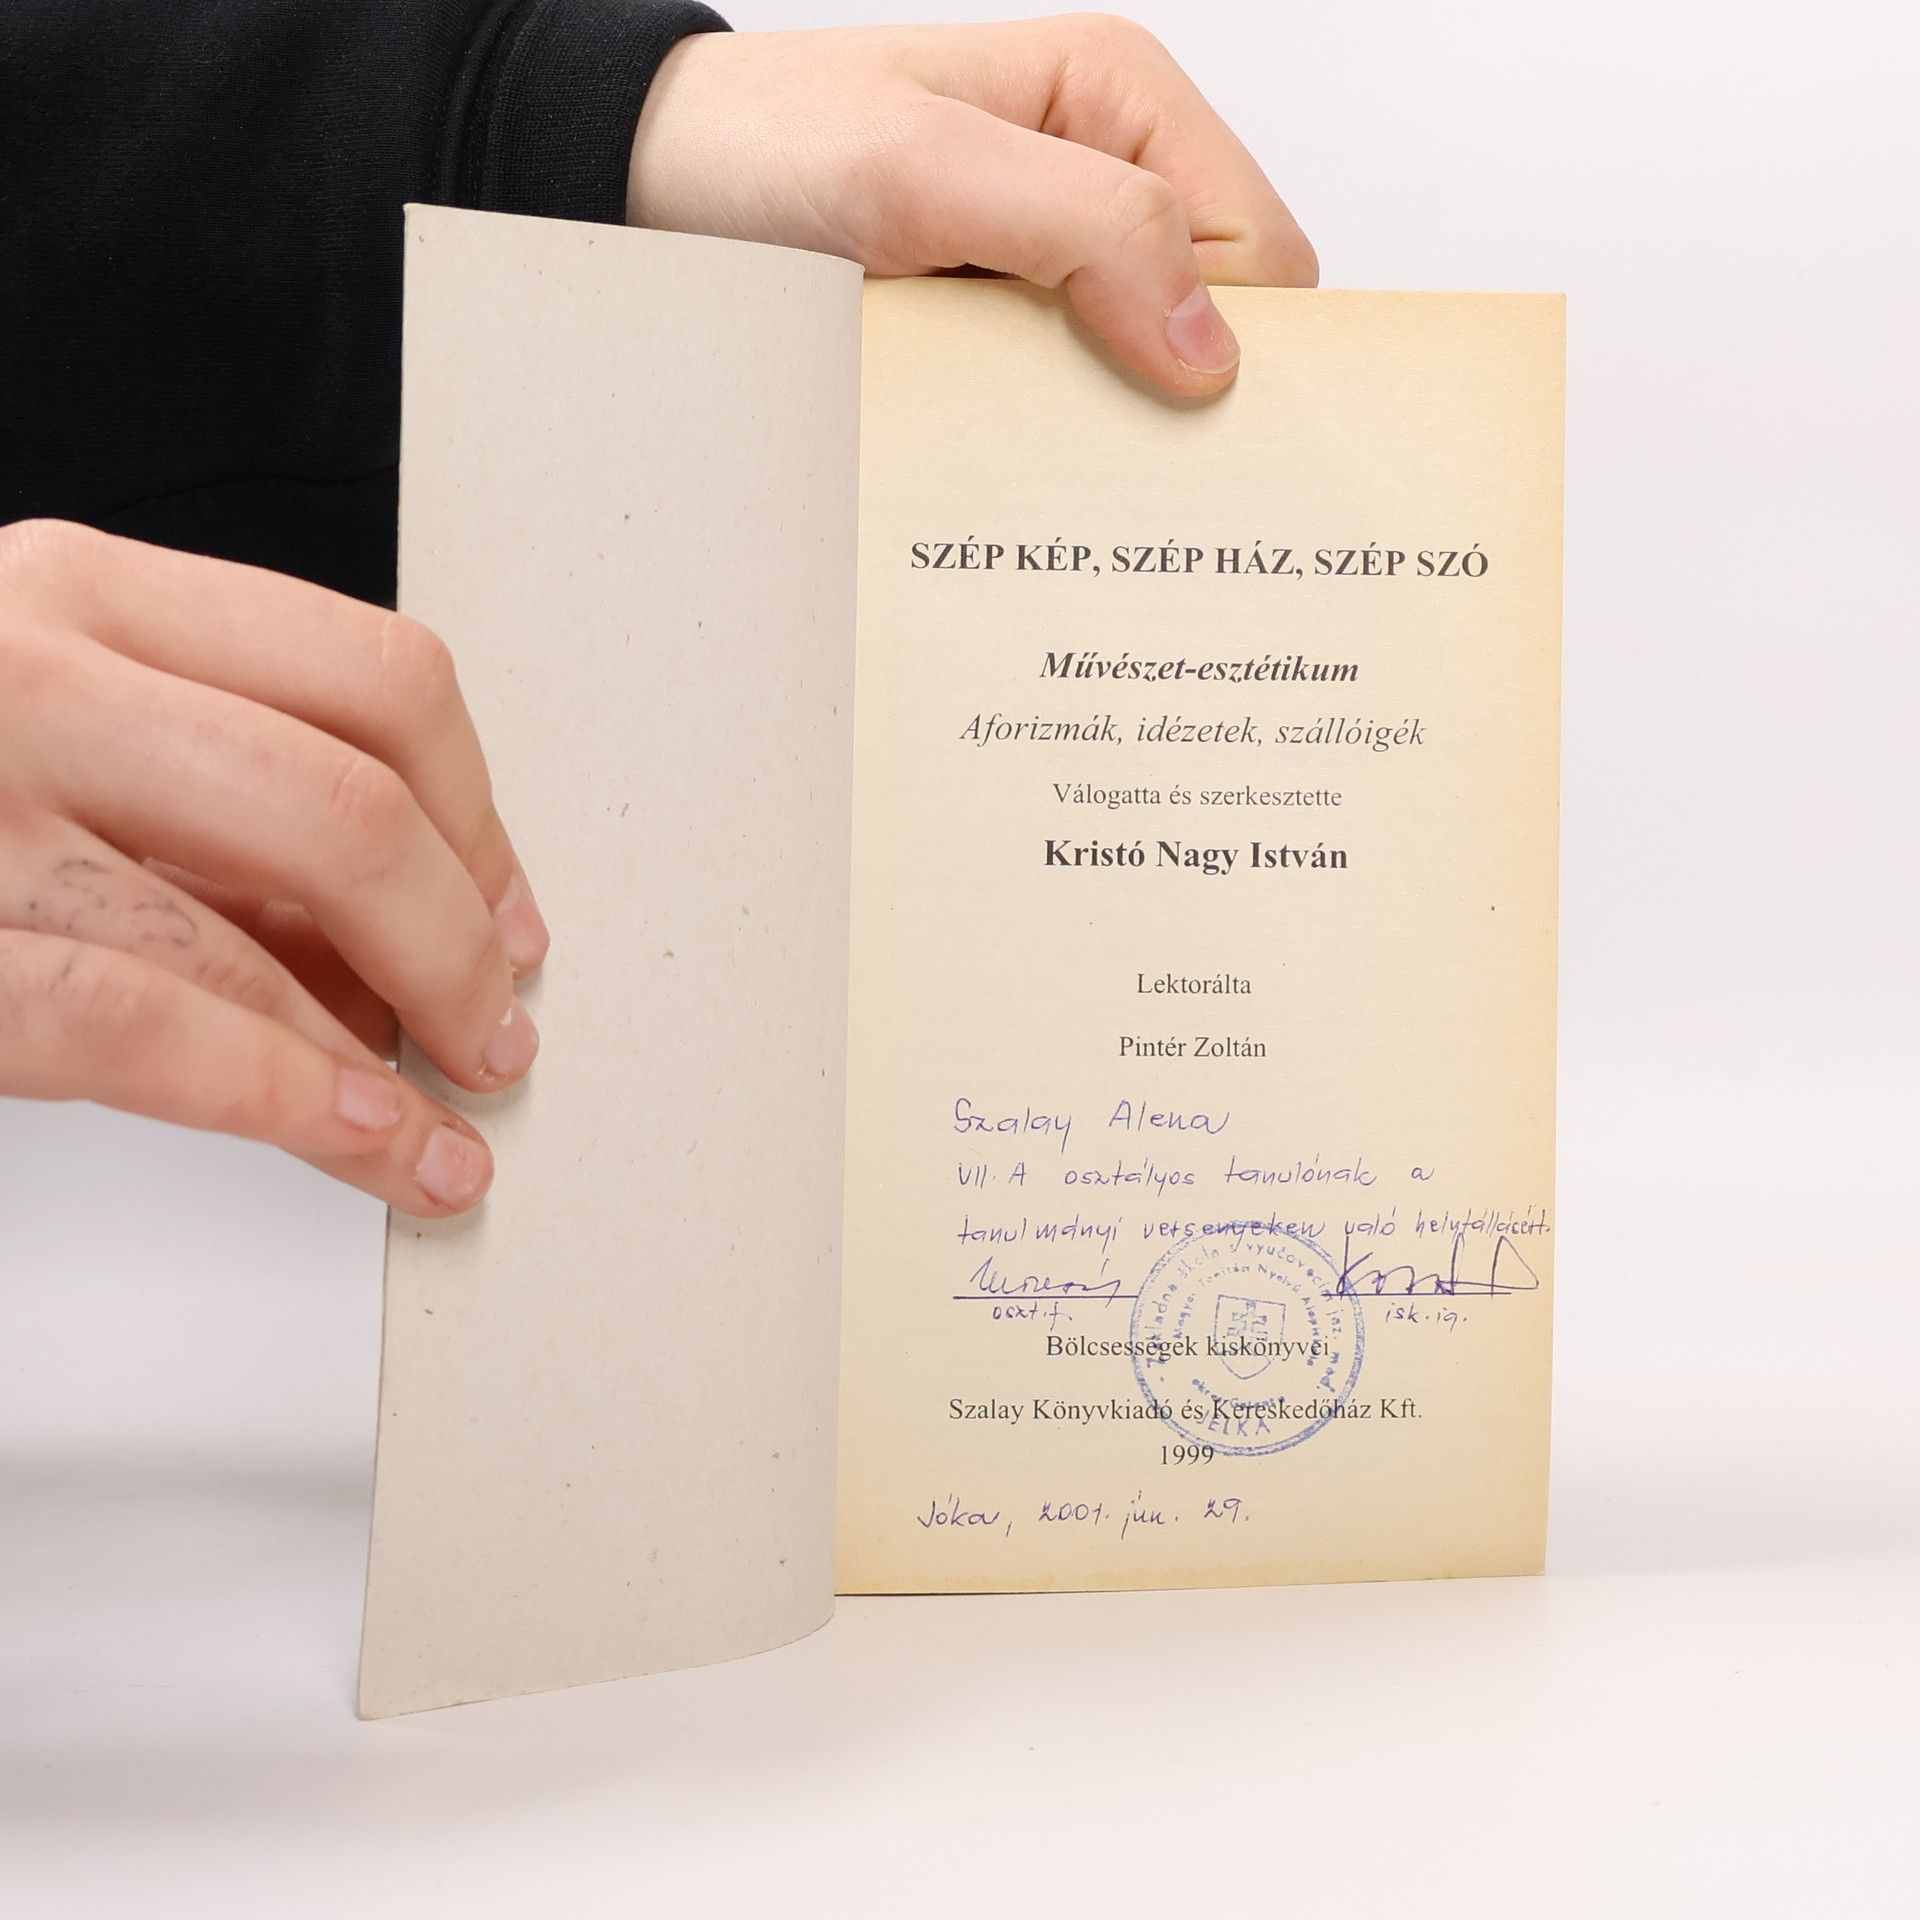 SZÉP KÉP, SZÉP HÁZ, SZÉP SZÓ
Művészet-esztétikum
Aforizmák, idézetek, szállóigék
Válogatta és szerkesztette
Kristó Nagy István
Lektorálta
Pintér Zoltán
Szalay Alena
VII. A osztályos tanulónak a
tanulmányi versenyeken való helytállásért.
oszt.f.
isk.ig.
Základná škola s vyučovacím jaz. maď.
Magyar Tanítási Nyelvű Alapiskola
JELKA
Bölcsességek kiskönyvei
Szalay Könyvkiadó és Kereskedőház Kft.
1999
Jóka, 2001. jún. 29.